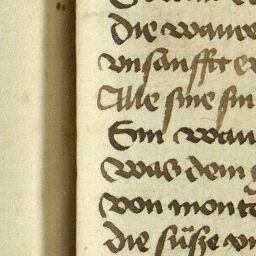 die ware
vnsanfft er
Alle sine sin
Ein wan
was dem g
von monte
die süsze vn